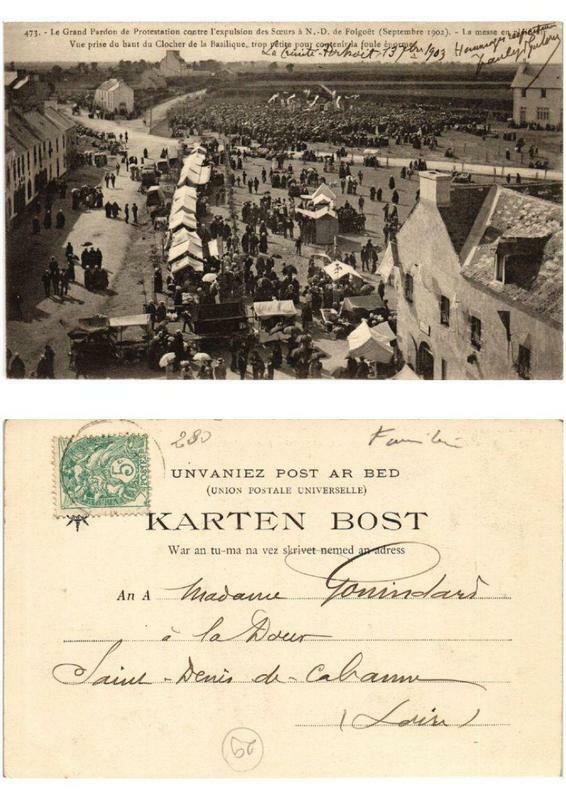 473. - Le Grand Pardon de Protestation contre l'expulsion des Sœurs à N.-D. de Folgoët (Septembre 1902). - La messe en
Vue prise du haut du Clocher de la Basilique, trop petite pour contenir la foule énorme
La Trinité- 1903
Hommages
5
280
UNVANIEZ POST AR BED
(UNION POSTALE UNIVERSELLE)
KARTEN BOST
War an tu-ma na vez skrivet nemed an adress
An A Madame Gonindard
à la Dour
Saint-Denis-de-Cabanne
(Loire)